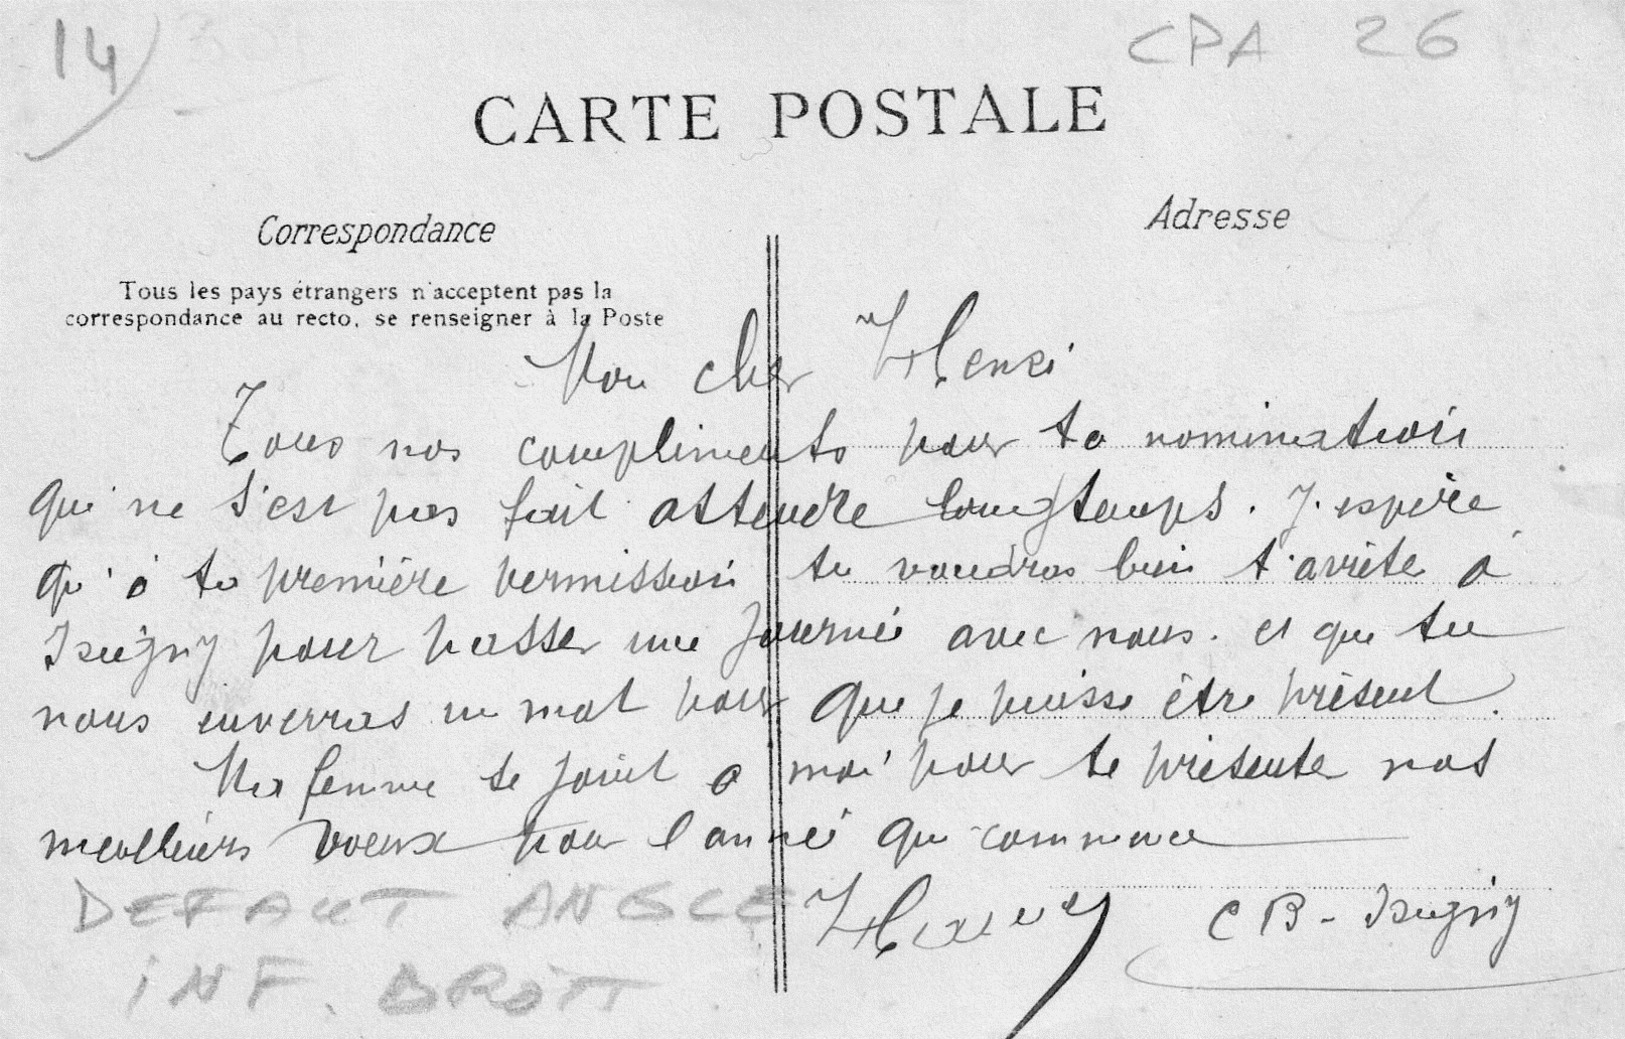 14)
CPA 26
CARTE POSTALE
Correspondance
Adresse
Tous les pays étrangers n'acceptent pas la
correspondance au recto, se renseigner à la Poste
Mon cher Henri
Tous nos compliments pour ta nomination
qui ne s'est pas fait attendre longtemps. J'espère
qu'à ta première permission tu voudras bien t'arrête à
Isigny pour passer une journée avec nous. et que tu
nous enverras un mot pour que je puisse être présent.
Ma femme se joint à moi pour te présenter nos
meilleurs voeux pour l'année qui commence
CB - Isigny
DEFAUT ANGLE
INF. DROIT